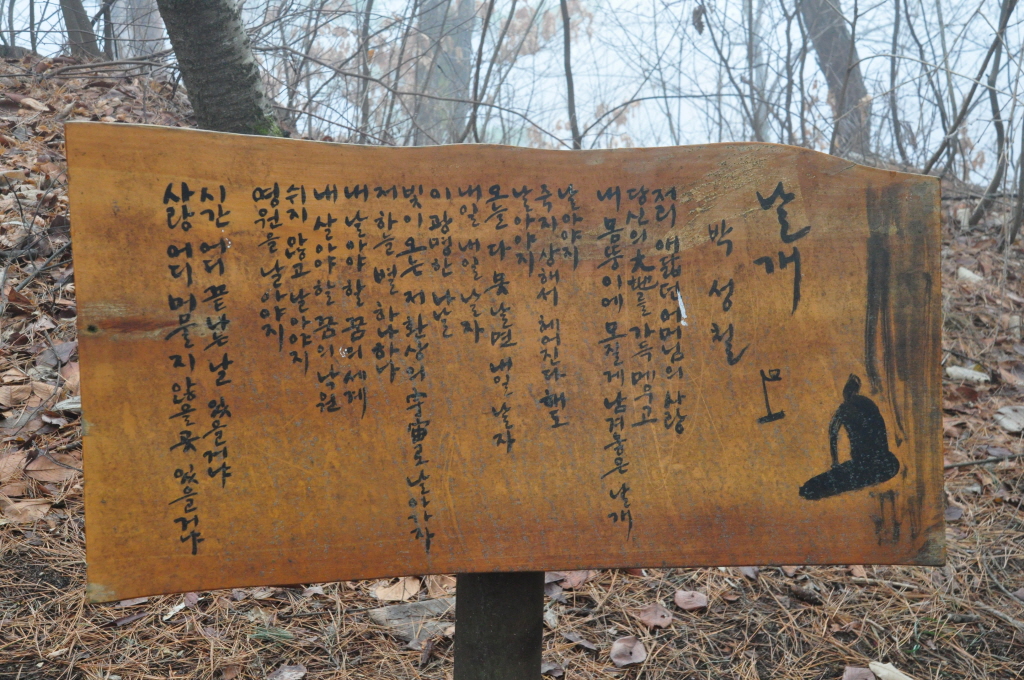 날개
박성철 모
저리 애닯던 어머님의 사랑
당신의 大地를 가득 메우고
내 몸뚱이에 모질게 남겨놓은 날개
날아야지
죽지 상해서 헤어진다 해도
날아야지
오늘 다 못 날면 내일 날자
내일 내일 날자
이 광명한 나날
빛이 오는 저 환상의 宇宙로 날아가자
저 하늘 별 하나 하나
내 날아야 할 꿈의 세계
내 살아야 할 꿈의 낙원
쉬지 않고 날아야지
영원을 날아야지
시간 어디 끝나는 날 있을거냐
사랑 어디 머물지 않을 곳 있을거냐